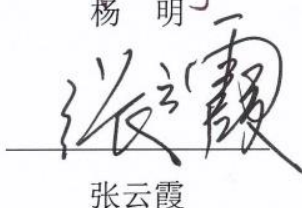 杨 明
张云霞
张云霞